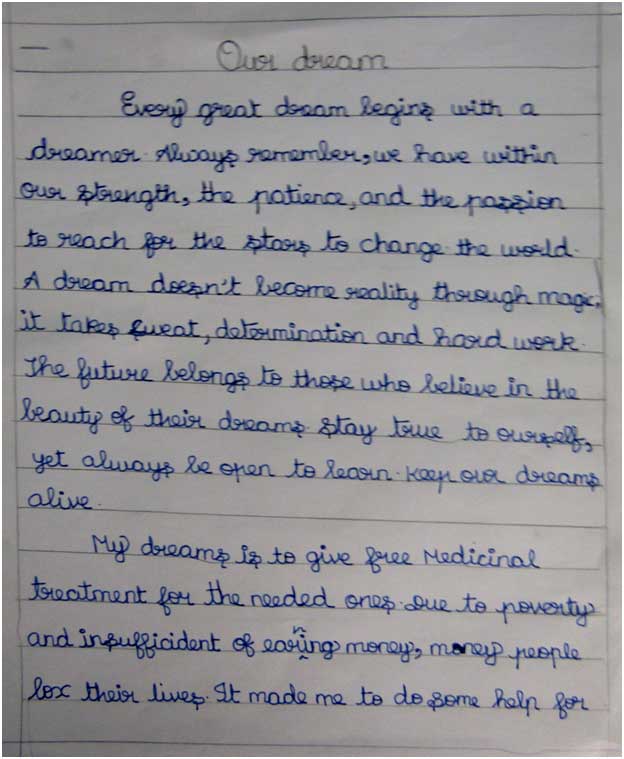 Our dream
Every great dream begins with a
dreamer. Always remember, we have within
our strength, the patience, and the passion
to reach for the stars to change the world.
A dream doesn't become reality through magic,
it takes sweat, determination and hard work.
The future belongs to those who believe in the
beauty of their dreams. stay true to ourself,
yet always be open to learn. Keep our dreams
alive.
My dreams is to give free Medicinal
treatment for the needed ones. Due to poverty
and insufficident of earning money, money people
lox their lives. It made me to do some help for